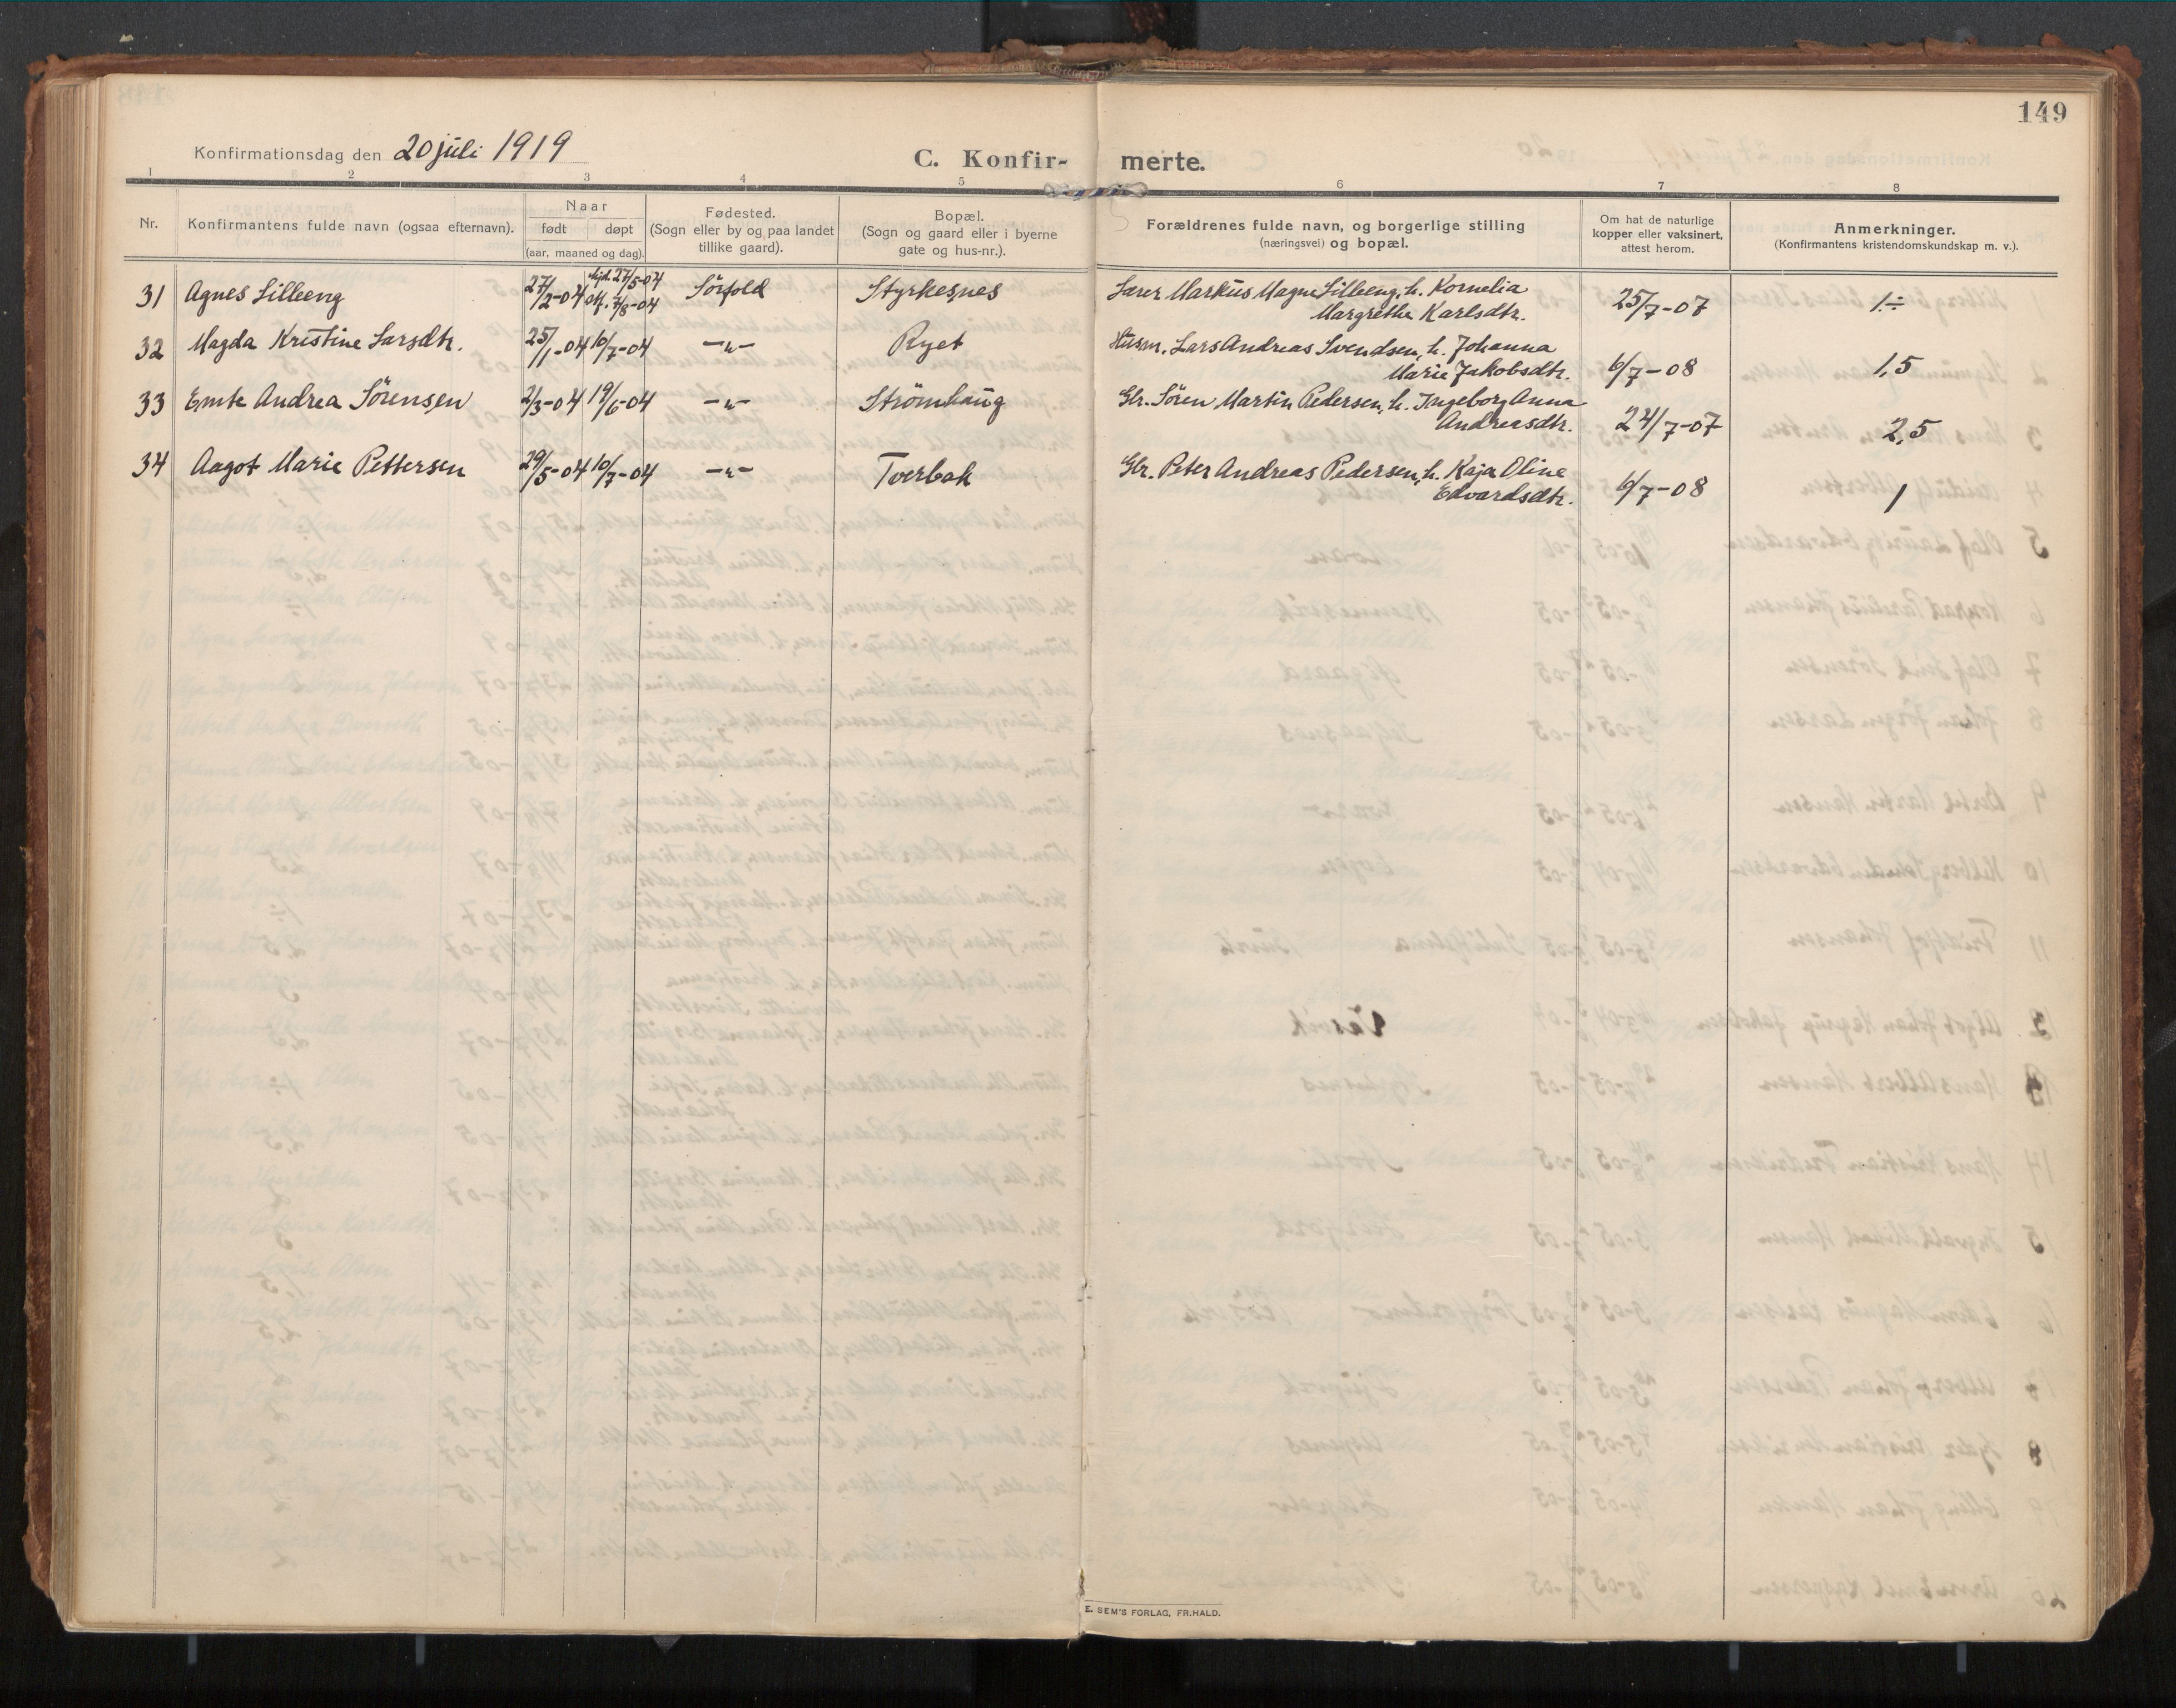 149
Konfirmationsdag den 20 juli 1919
C. Konfir- merte.
1 2 3 4 5 6 7 8
Nr.
Konfirmantens fulde navn (ogsaa efternavn).
Naar
født døpt
(aar, maaned og dag).
Fødested.
(Sogn eller by og paa landet
tillike gaard).
Bopæl.
(Sogn og gaard eller i byerne
gate og hus-nr.).
Forældrenes fulde navn, og borgerlige stilling
(næringsvei) og bopæl.
Om hat de naturlige
kopper eller vaksinert,
attest herom.
Anmerkninger.
(Konfirmantens kristendomskundskap m. v.).
31 Agnes Lilleeng 27/2-04 hjd. 27/5-04 Sörfold Styrkesnes Lærer Markus Magne Lilleeng, h. Kornelia 25/7-07 1÷
7/8-04 Margrethe Karlsdtr.
32 Magda Kristine Larsdtr. 25/1-04 10/7-04 -"- Ryet Husm. Lars Andreas Svendsen, h. Johanna
Marie Jakobsdtr. 6/7-08 1,5
33 Emte Andrea Sörensen 2/3-04 19/6-04 -"- Strömhaug Gbr. Sören Martin Pedersen, h. Ingeborg Anna
Andreasdtr. 24/7-07 2,5
34 Aagot Marie Pettersen 29/5-04 10/7-04 -"- Tverbak Gbr. Peter Andreas Pedersen, h. Kaja Oline
Edvardsdtr. 6/7-08 1
E. SEM'S FORLAG, FR.HALD.